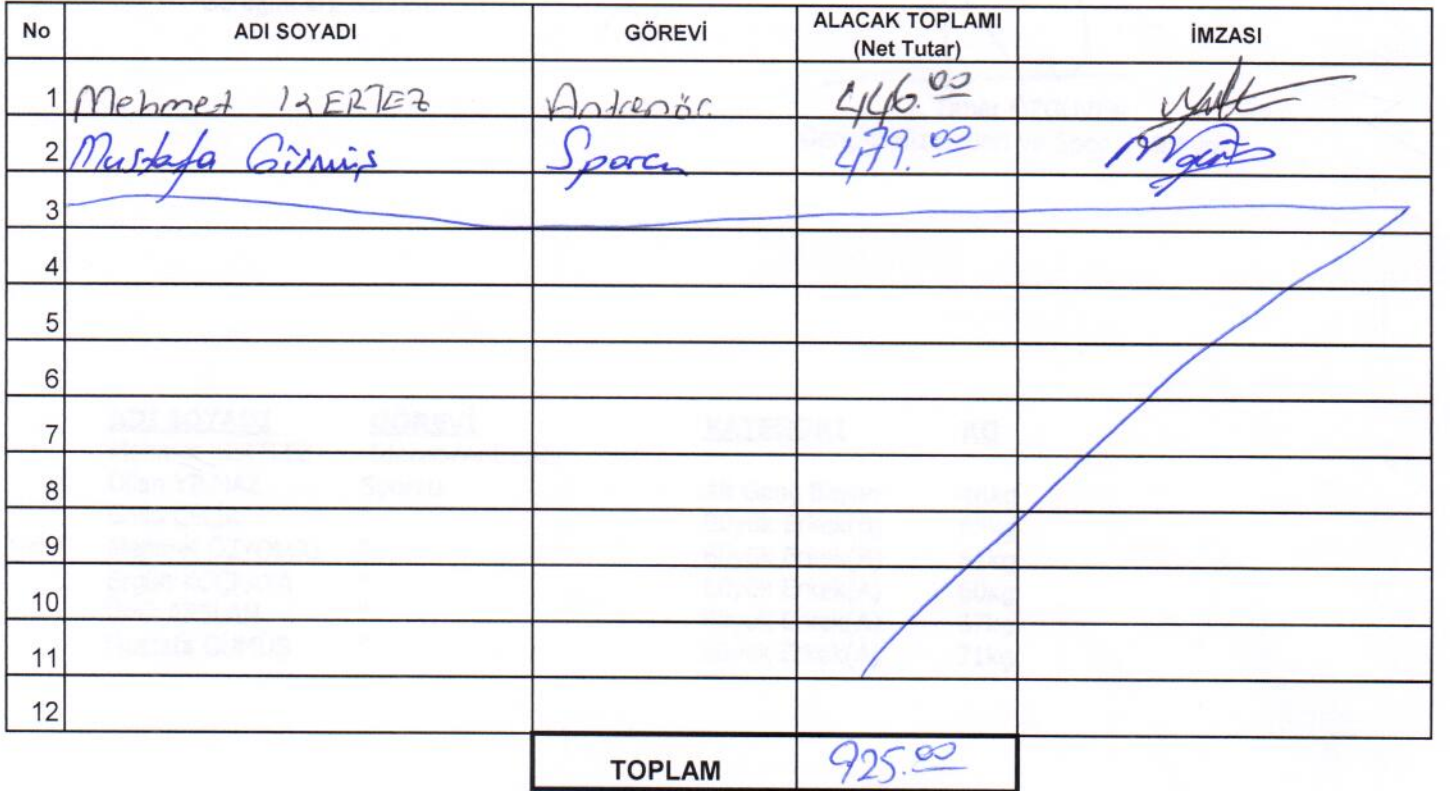 No ADI SOYADI GÖREVİ ALACAK TOPLAMI (Net Tutar) İMZASI
1 Mehmet KERTEZ Antrenör 446.00
2 Mustafa Gümüş Sporcu 479.00
3
4
5
6
7
8
9
10
11
12
TOPLAM 925.00